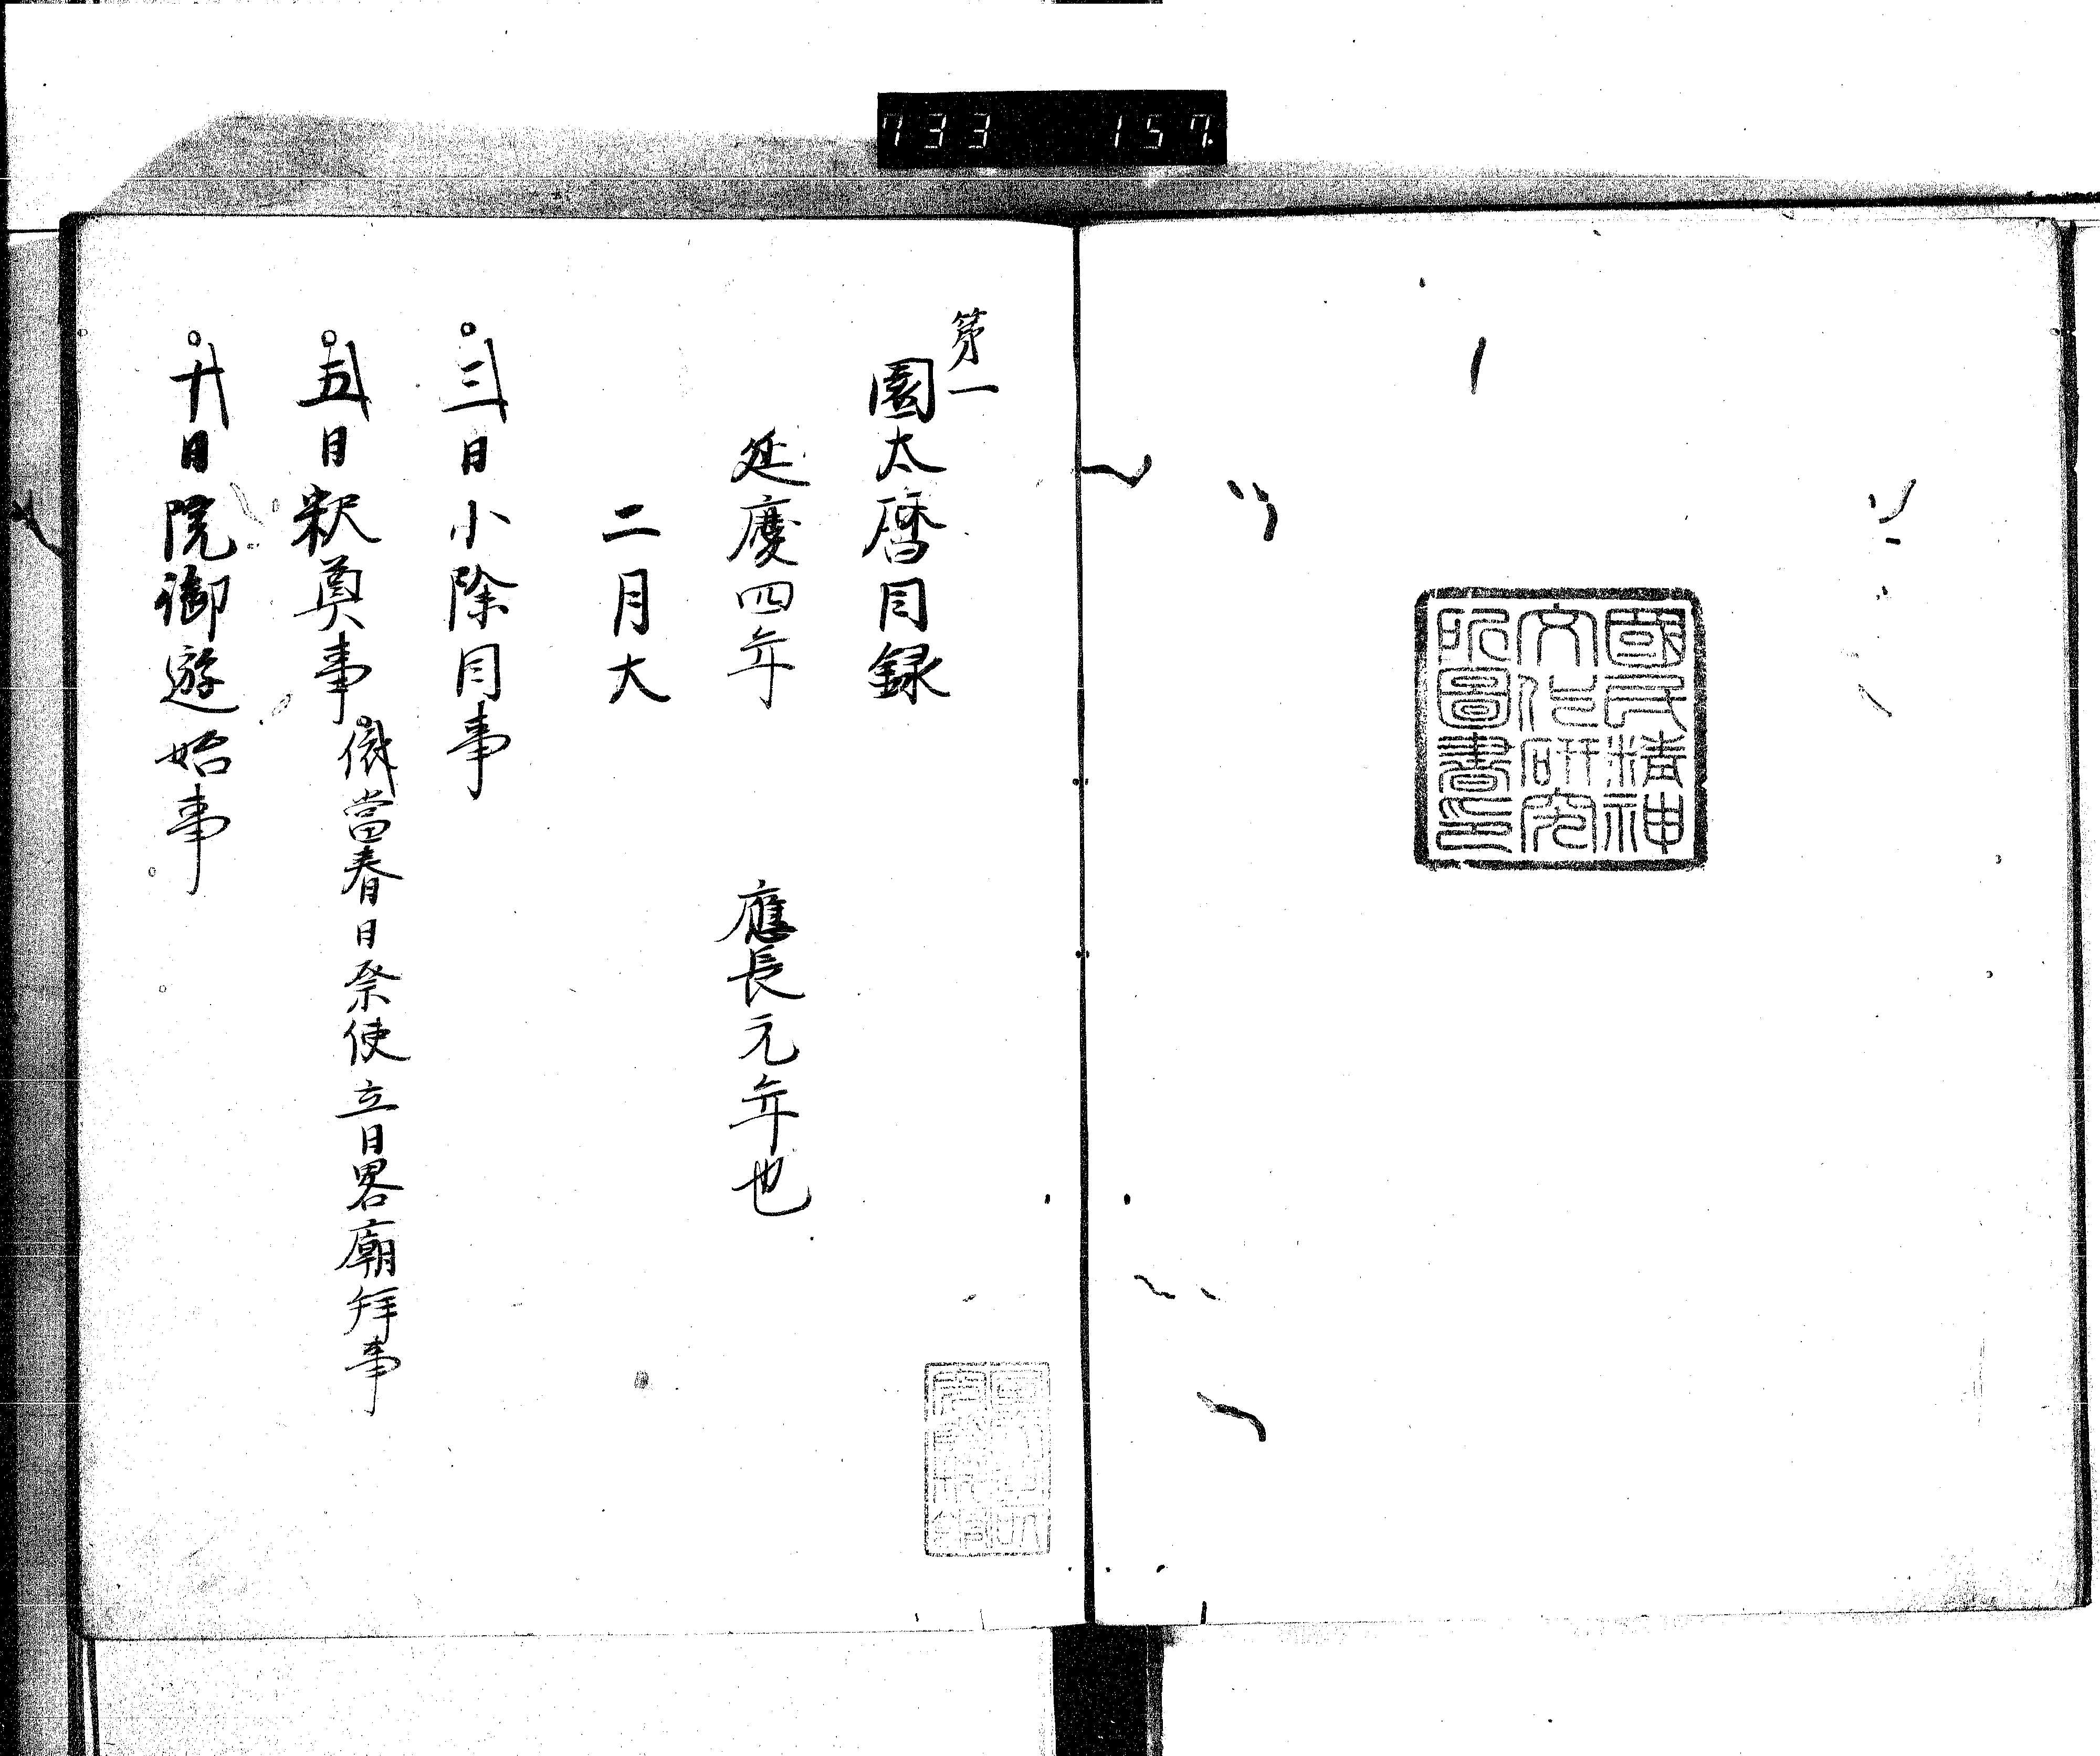 733 157
國民精神
文化研究
所圖書印
第一
園太曆目録
延慶四年 應長元年也
二月大
三日小除目事
五日釈奠事 依當春日祭使立日畧廟拜事
十日院御遊始事